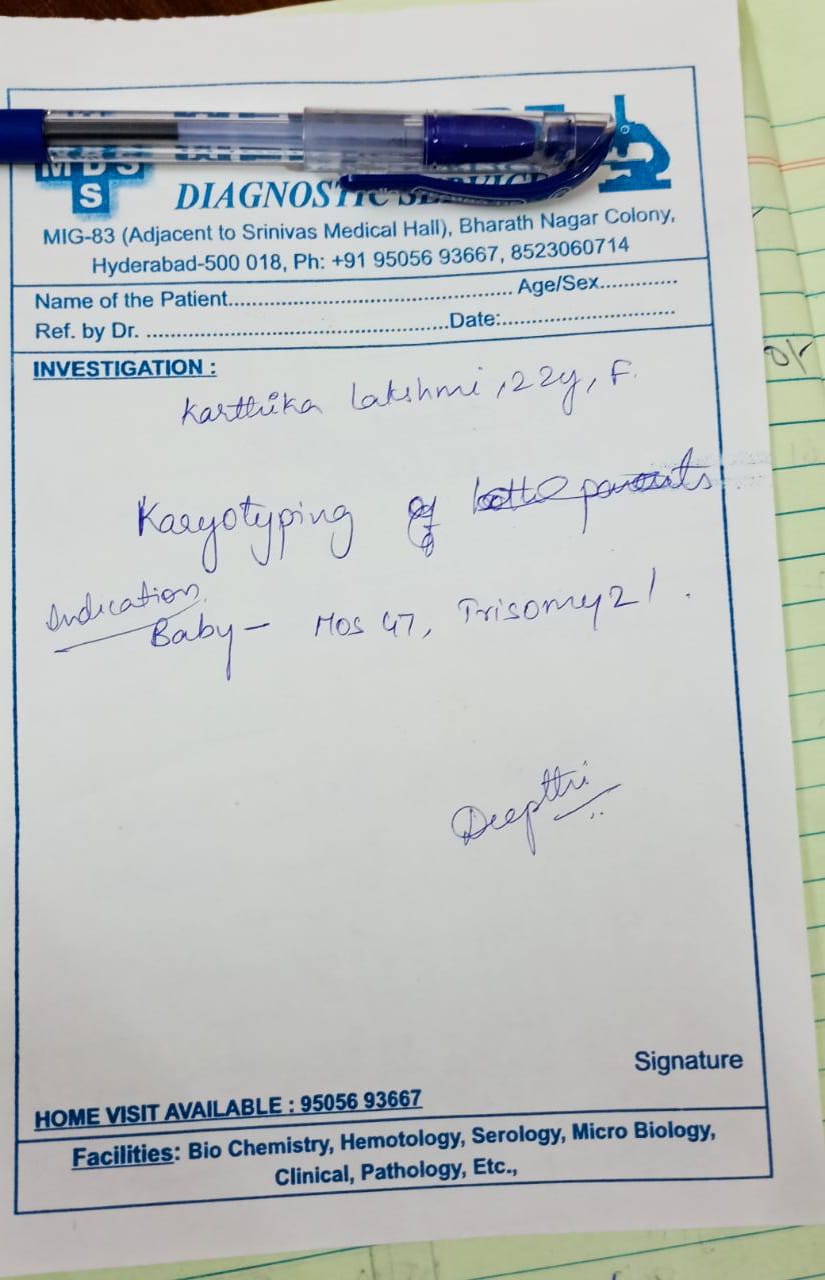 MDS
S
DIAGNOSTIC SERVICES
MIG-83 (Adjacent to Srinivas Medical Hall), Bharath Nagar Colony,
Hyderabad-500 018, Ph: +91 95056 93667, 8523060714
Name of the Patient.................................................. Age/Sex.............
Ref. by Dr. ....................................................Date:..............................
INVESTIGATION :
Karthika Lakshmi, 22y, F.
Karyotyping of both parents
Indication
Baby - Mos 47, Trisomy 21.
Deepthi
Signature
HOME VISIT AVAILABLE : 95056 93667
Facilities: Bio Chemistry, Hemotology, Serology, Micro Biology,
Clinical, Pathology, Etc.,